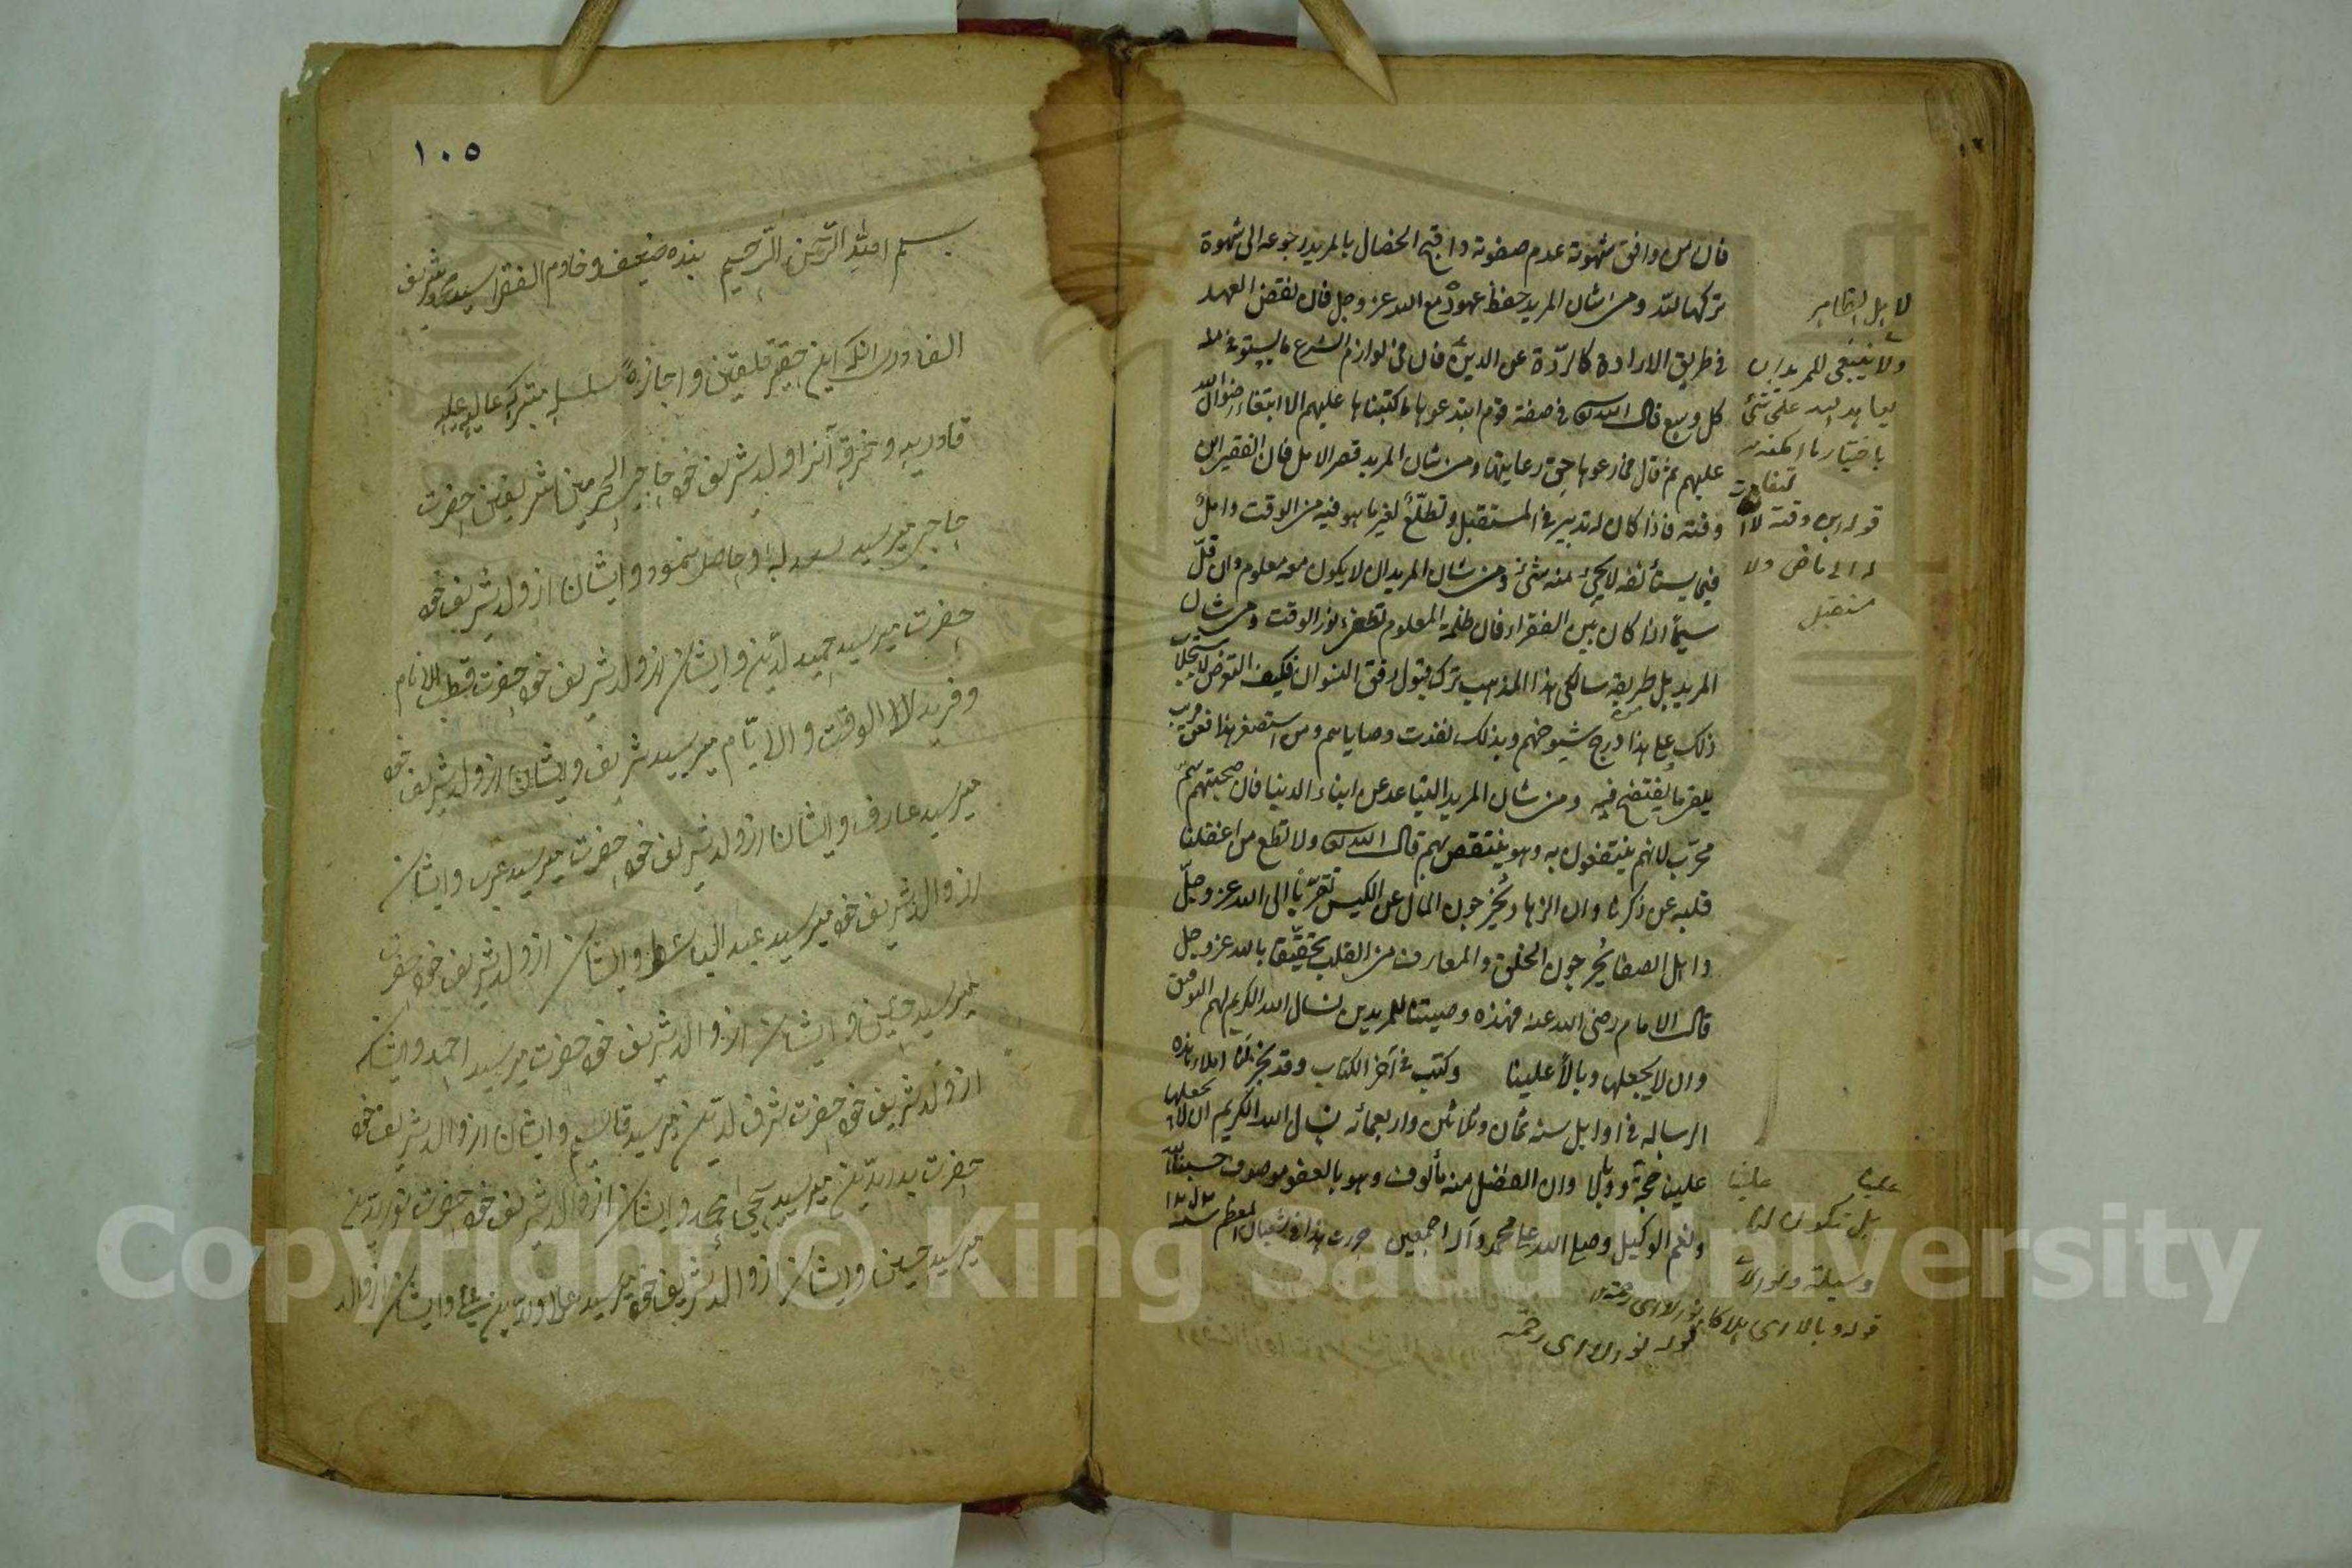 فان من وافق شهوته عدم صفوته واقبح الخصال بالمريد رجوعه الى شهوة
تركها لله ومن شان المريد حفظ عهوده مع الله عز وجل فان نقض العهد
في طريق الارادة كالردّة عن الدين فان في لوازم الشرع ما يستوفى منه
كل وسع قال الله تعالى في صفة قوم ابتدعوها ما كتبناها عليهم الا ابتغاء رضوان الله
عليهم ثم قال فما رعوها حق رعايتها ومن شان المريد قصر الامل فان الفقير ابن
وقته فاذا كان له تدبير في المستقبل وتطلّع لغير ما هو فيه من الوقت وامل
فيما يستأنفه لا يجيء منه شئ ومن شان المريد ان لا يكون معه معلوم وان قلّ
سيّما اذا كان بين الفقراء فان ظلمة المعلوم تطفئ نور الوقت ومن شان
المريد بل طريقة سالكي هذا المذهب ترك قبول رفق النسوان فكيف التعرض لاستجلاب
ذلك على هذا درج شيوخهم وبذلك نفذت وصاياهم ومن استصغر هذا فعن قريب
يلقى ما يفتضح فيه ومن شان المريد التباعد عن ابناء الدنيا فان صحبتهم سمّ
مجرّب لانهم ينتفعون به وهو ينتقص بهم قال الله تعالى ولا تطع من اغفلنا
قلبه عن ذكرنا وان الزهاد يُخرجون المال عن الكيس تقرّبًا الى الله عز وجلّ
واهل الصفا يُخرجون الخلق والمعارف من القلب تحقّقا بالله عز وجل
قال الامام رضى الله عنه فهذه وصيتنا للمريدين نسال الله الكريم لهم التوفيق
وان لا يجعلها وبالاً علينا وكتب في آخر الكتاب وقد نجز لنا املاء هذه
الرساله في اوايل سنه ثمان وثلاثين واربعمائه نسال الله الكريم ان لا يجعلها
علينا حجة ووبالا وان الفضل منه مألوف وهو بالعفو موصوف حسبنا الله
ونعم الوكيل وصلى الله على محمد وآله اجمعين حررت هذا في شعبان المعظم سنة
لا بل الظاهر
ولا ينبغى للمريد ان
يعاهد الله على شئ
باختياره ما امكنه
قوله ابن وقته لا
له الى ماضى ولا
مستقبل
علينا علينا
بل تكون لنا
وسيلة ونورا
قوله وبالا اى هلاكا
قوله نورا اى رحمة
١٠٥
بسم الله الرّحمن الرّحيم بنده ضعيف وخادم الفقرا سيد
القادرى انكه اين حقير تلقين واجازهٴ سلسلهٴ متبركهٴ عاليهٴ عليهٴ
قادريه وخرقهٴ آنرا از والد شريف خود حاجى الحرمين الشريفين حضرت
حاجى مير سيد سعد الله حاصل نمود وايشان از والد شريف خود
حضرت مير سيد حميد الدين وايشان از والد شريف خود حضرت قطب الانام
وفريد الوقت والايّام مير سيد شريف وايشان از والد شريف خود
مير سيد عارف وايشان از والد شريف خود حضرت مير سيد عرب وايشان
از والد شريف خود مير سيد عبد الباسط وايشان از والد شريف خود حضرت
مير سيد حسين وايشان از والد شريف خود حضرت مير سيد احمد وايشان
از والد شريف خود حضرت شرف الدين مير سيد قاسم وايشان از والد شريف خود
حضرت بدر الدين مير سيد يحيى محمد وايشان از والد شريف خود حضرت نور الدين
مير سيد حسين وايشان از والد شريف خود مير سيد علاو الدين على وايشان از والد